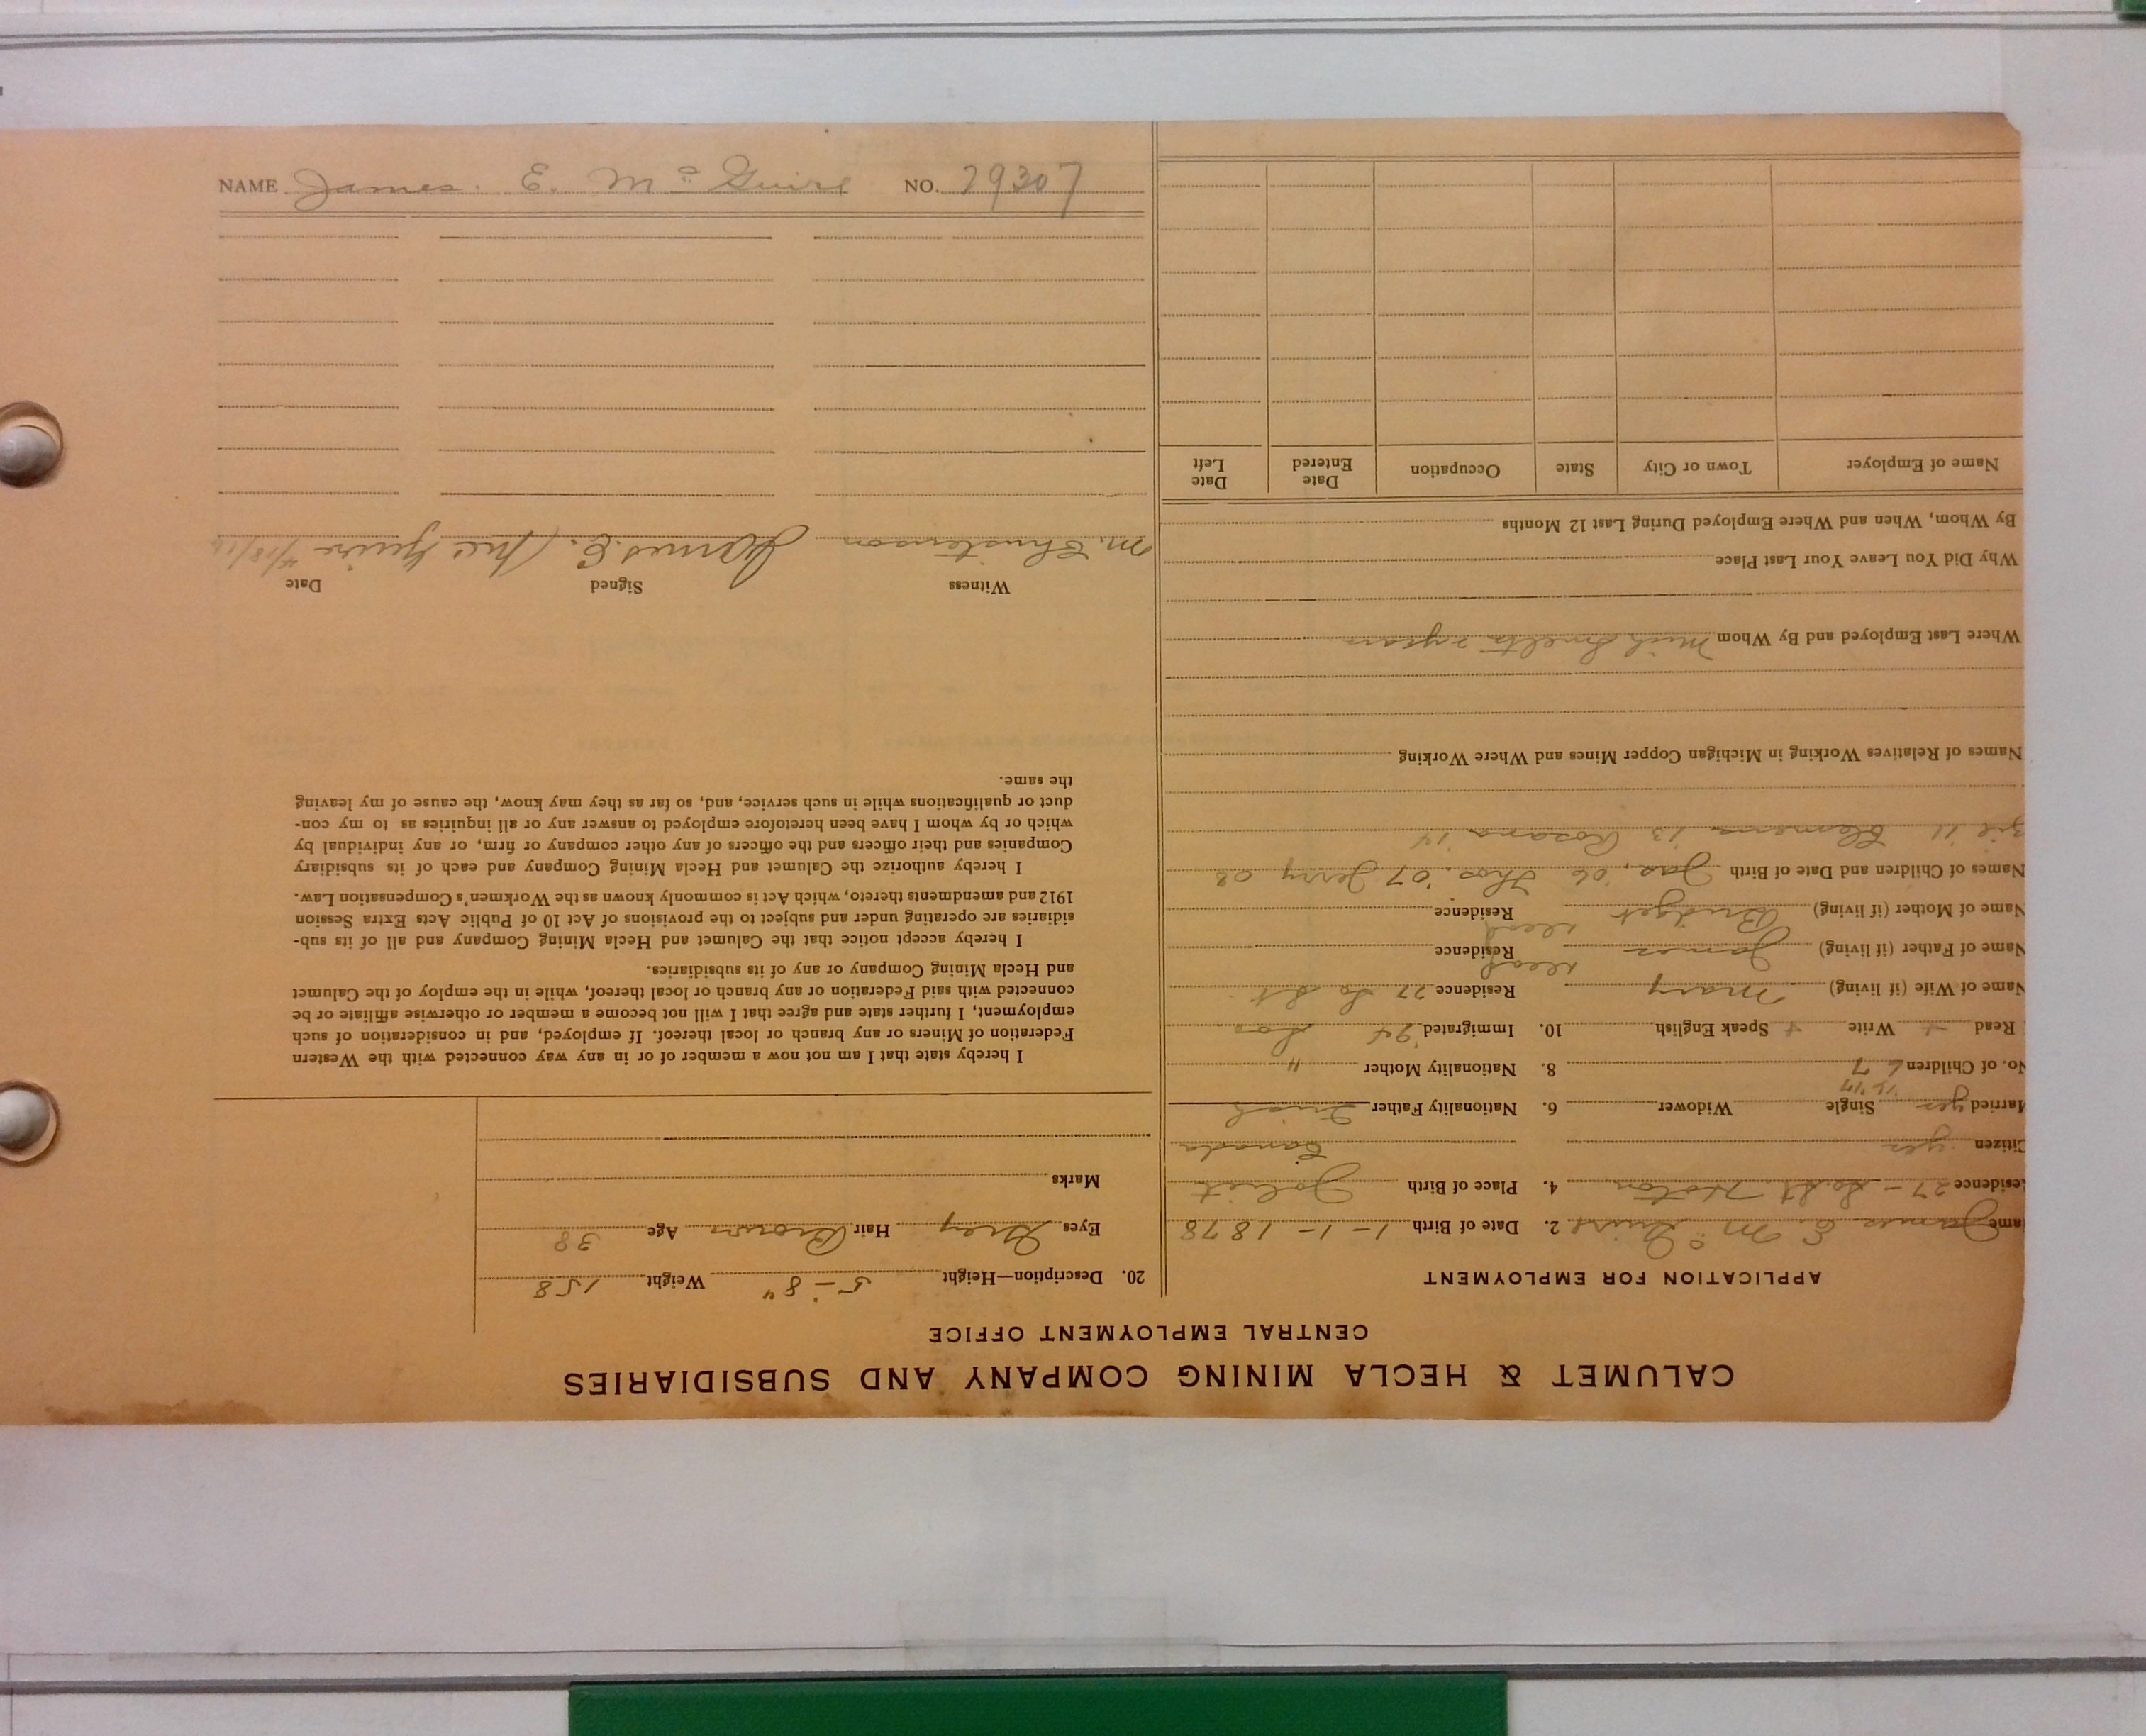 CALUMET & HECLA MINING COMPANY AND SUBSIDIARIES
CENTRAL EMPLOYMENT OFFICE
APPLICATION FOR EMPLOYMENT
ame James E. Mc Guire 2. Date of Birth 1-1-1878
Residence 27 - So. St. Hoton 4. Place of Birth Joliet
Citizen yes Canada
Married yes Single Widower 6. Nationality Father Irish
No. of Children 7 8. Nationality Mother "
Read + Write + Speak English 10. Immigrated
Name of Wife (if living) Mary Residence 27 So St
Name of Father (if living) James dead Residence
Name of Mother (if living) Bridget dead Residence
Names of Children and Date of Birth Jas, '06 Thos. '07 Jerry 08
11 13 Rosana 14
Names of Relatives Working in Michigan Copper Mines and Where Working
Where Last Employed and By Whom Mich Smelter years
Why Did You Leave Your Last Place
By Whom, When and Where Employed During Last 12 Months
Name of Employer Town or City State Occupation Date Entered Date Left
20. Description—Height 5-8" Weight 158
Eyes Grey Hair Brown Age 38
Marks
I hereby state that I am not now a member of or in any way connected with the Western
Federation of Miners or any branch or local thereof. If employed, and in consideration of such
employment, I further state and agree that I will not become a member or otherwise affiliate or be
connected with said Federation or any branch or local thereof, while in the employ of the Calumet
and Hecla Mining Company or any of its subsidiaries.
I hereby accept notice that the Calumet and Hecla Mining Company and all of its sub-
sidiaries are operating under and subject to the provisions of Act 10 of Public Acts Extra Session
1912 and amendments thereto, which Act is commonly known as the Workmen's Compensation Law.
I hereby authorize the Calumet and Hecla Mining Company and each of its subsidiary
Companies and their officers and the officers of any other company or firm, or any individual by
which or by whom I have been heretofore employed to answer any or all inquiries as to my con-
duct or qualifications while in such service, and, so far as they may know, the cause of my leaving
the same.
Witness Signed Date
M. Christenson James E. Mc Guire
NAME James. E. Mc Guire NO. 29307